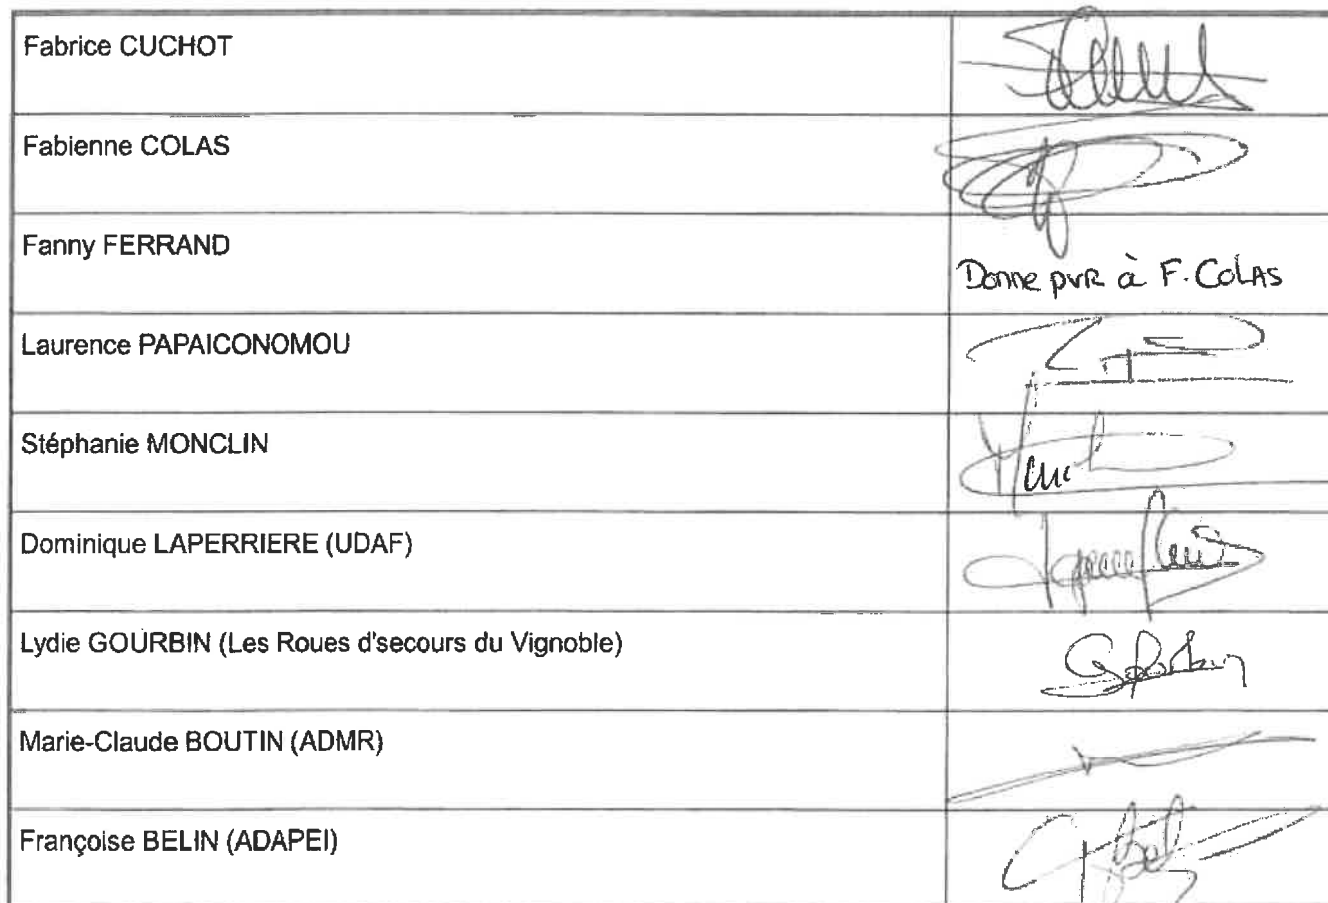 Fabrice CUCHOT
Fabienne COLAS
Fanny FERRAND
Donne pvR à F. COLAS
Laurence PAPAICONOMOU
Stéphanie MONCLIN
Dominique LAPERRIERE (UDAF)
Lydie GOURBIN (Les Roues d'secours du Vignoble)
Marie-Claude BOUTIN (ADMR)
Françoise BELIN (ADAPEI)